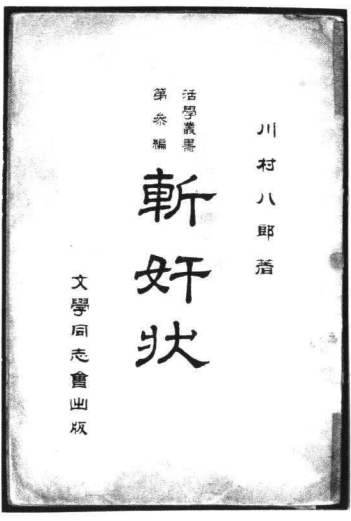 川村八郎著
活學叢書
第參編
斬奸狀
文學同志會出版